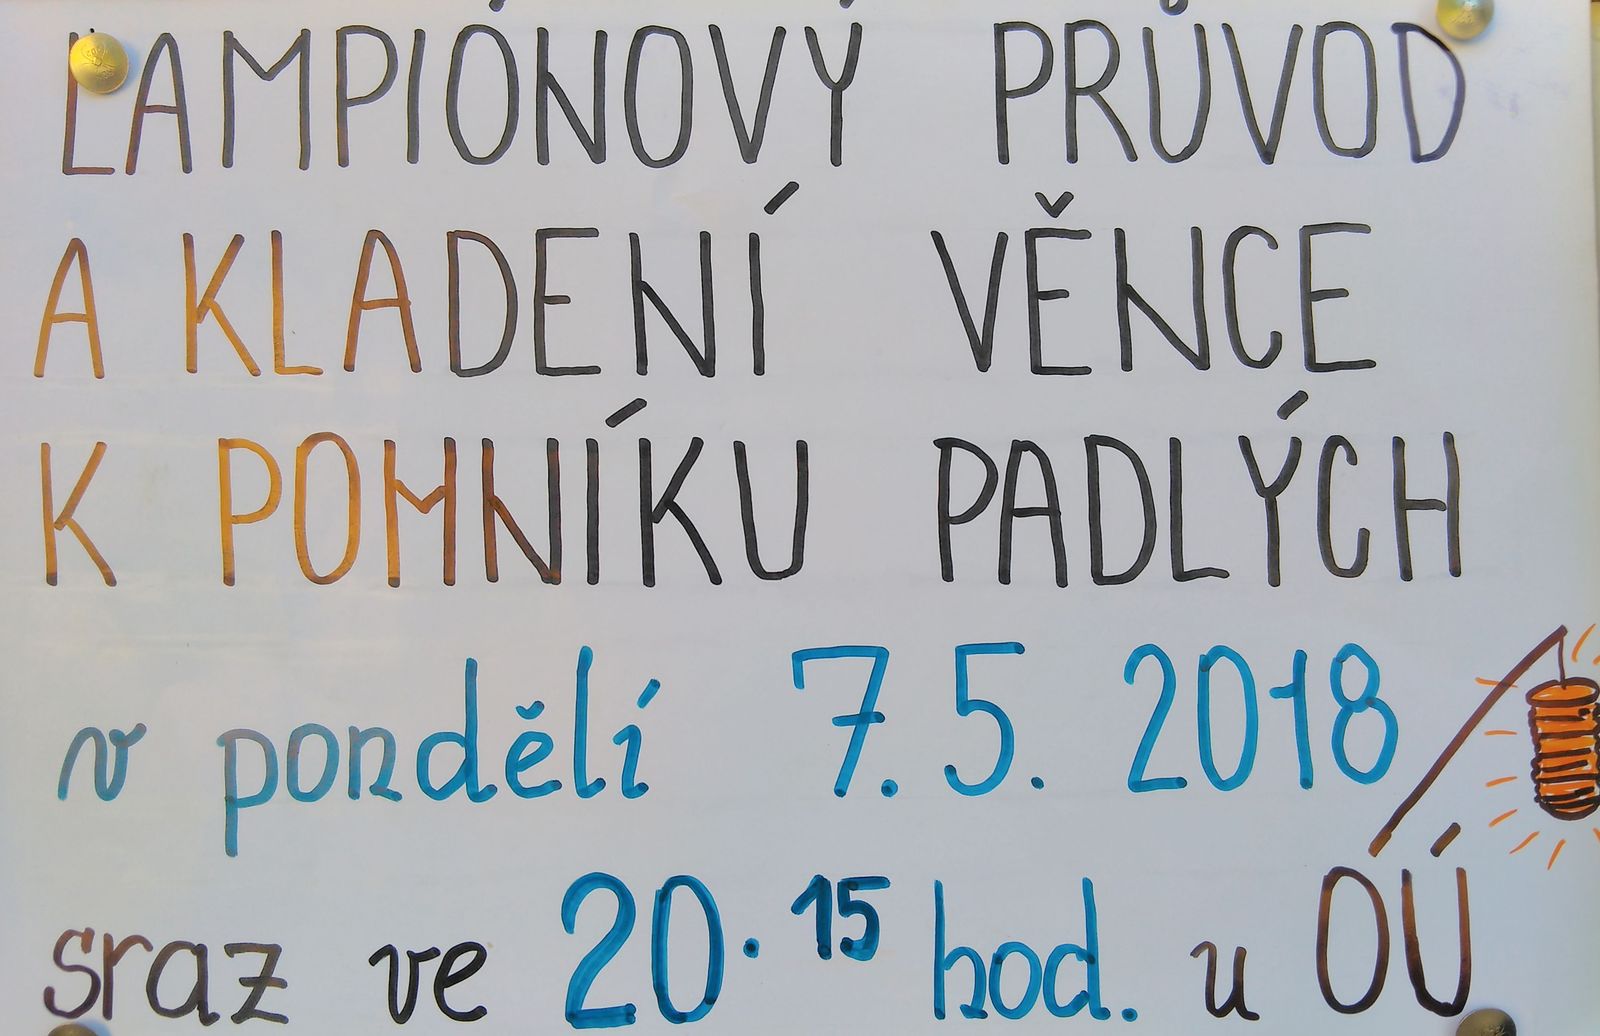 LAMPIÓNOVÝ PRŮVOD
A KLADENÍ VĚNCE
K POMNÍKU PADLÝCH
v pondělí 7. 5. 2018
sraz ve 20.15 hod. u OÚ